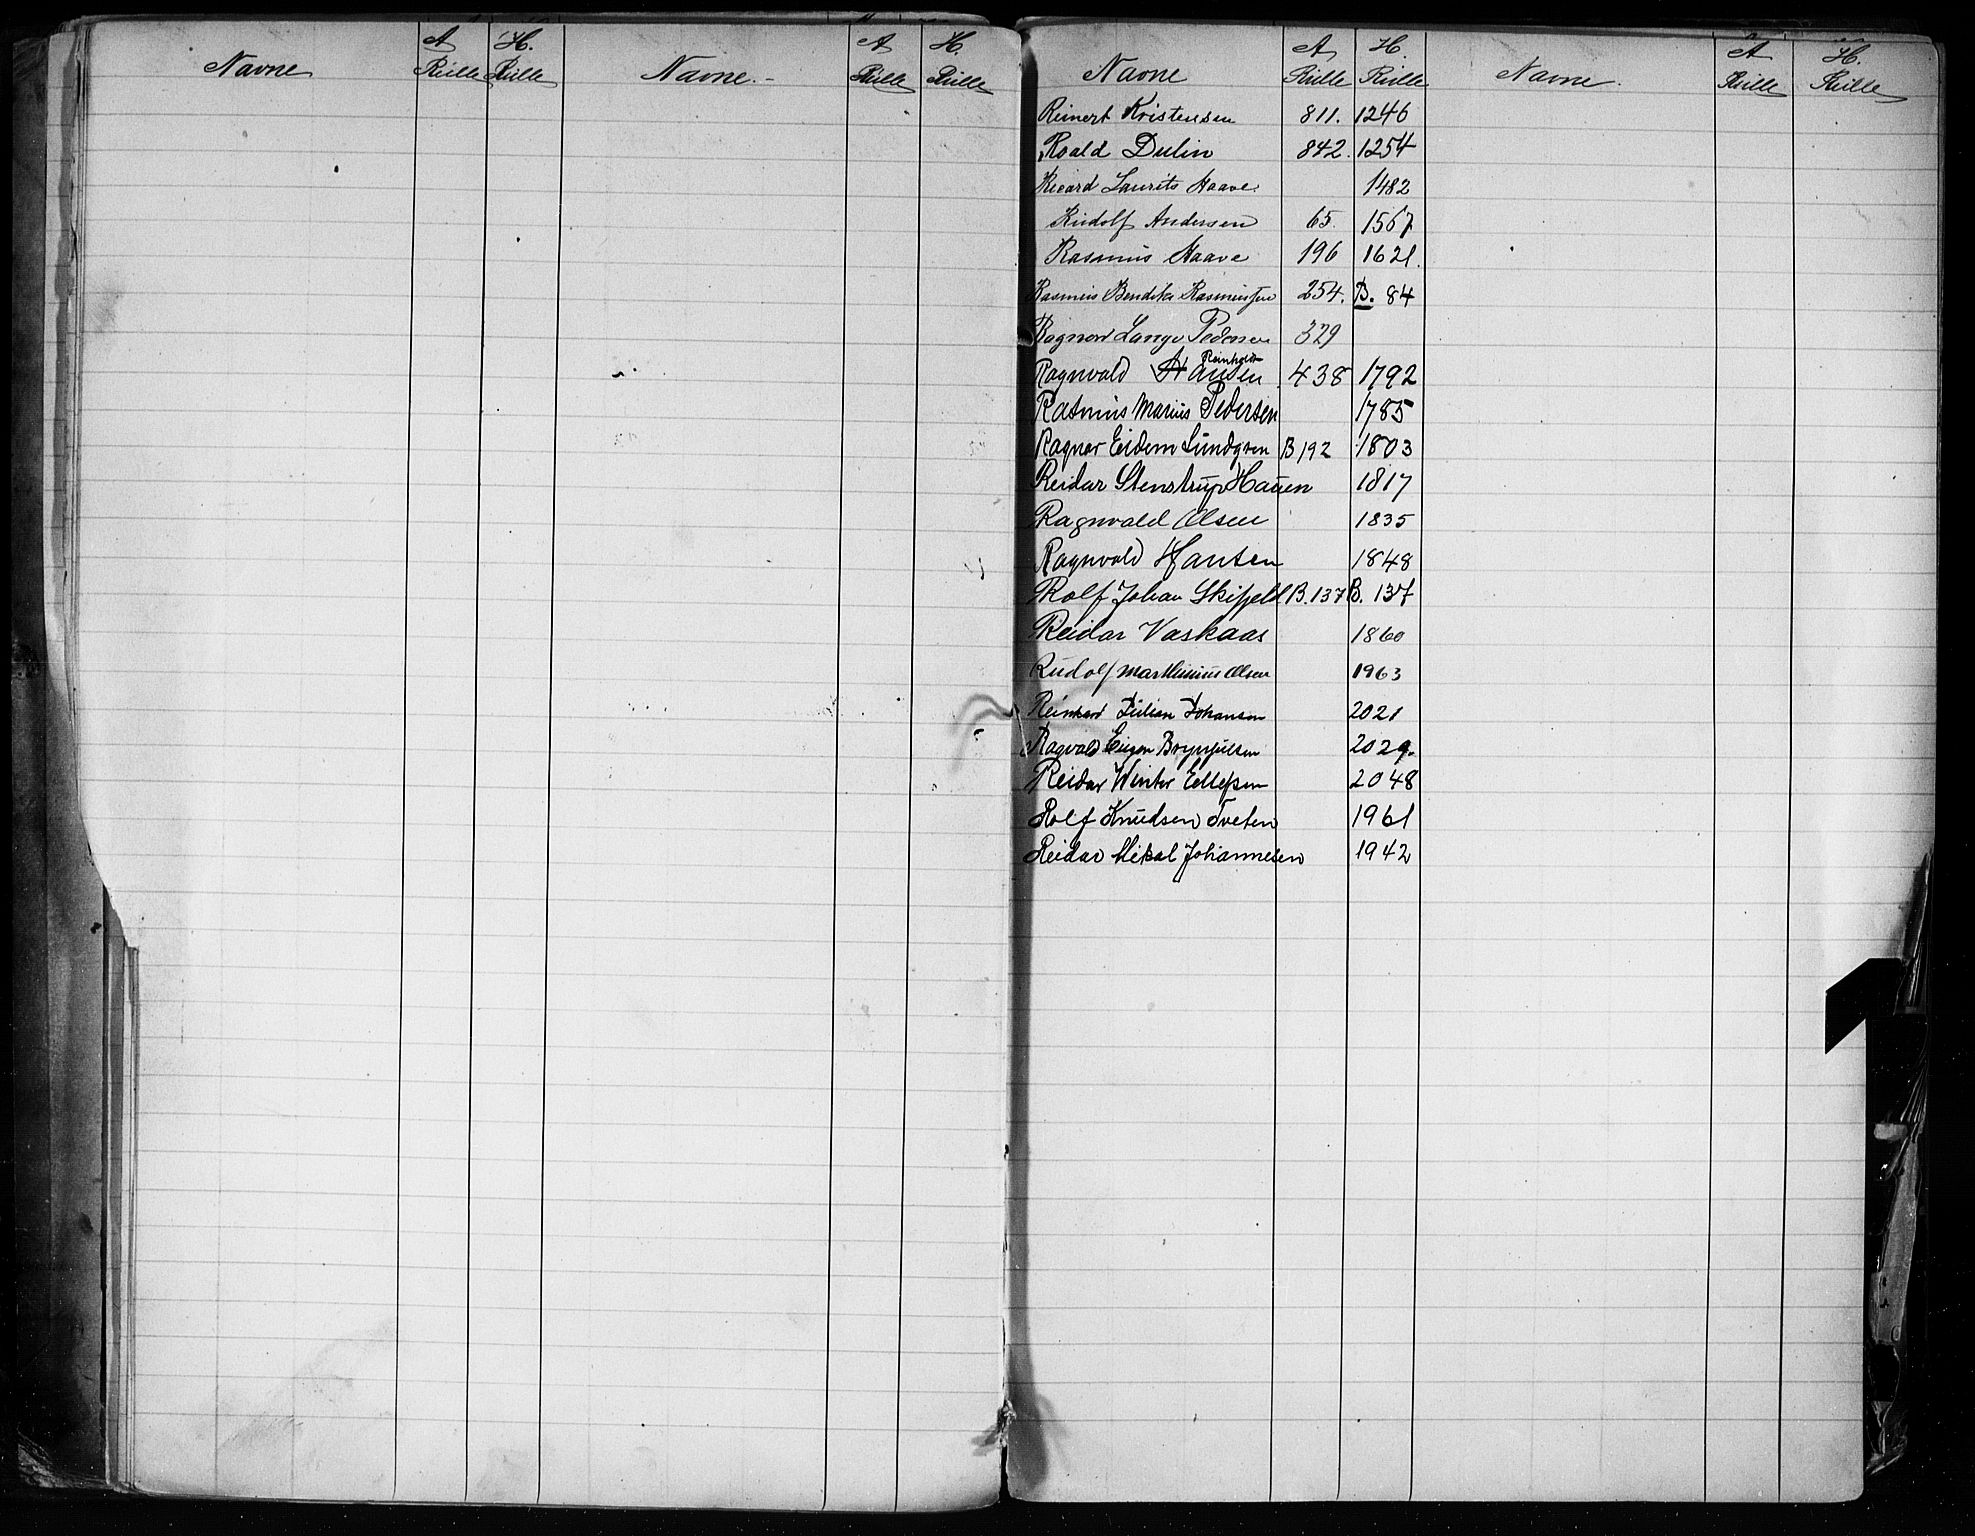 Navne A Rulle H. Rulle Navne. A Rulle H. Rulle
Navne A Rulle H. Rulle Navne. A Rulle H. Rulle
Reinert Kristensen 811. 1246
Roald Dulin 842. 1254
Ricard Laurits Haave. 1482
Rudolf Andersen 65. 1567
Rasmus Haave 196 1621.
Rasmus Bendiks Rasmussen 254. B. 84
Ragnar Lange Pedersen 329
Reinholdt
Ragnvald Hansen 438 1792
Rasmus Marius Pedersen 1785
Ragnar Eidem Lundgren B 192 1803
Reidar Stenstrup Hauen 1817
Ragnvald Olsen 1835
Ragnvald Hansen 1848
Rolf Johan Skifjeld B. 137 B. 137
Reidar Vaskaas 1860
Rudolf Marthinius Olsen 1963
Reinhard Julian Johansen 2021
Ragvald Eugen Brynjulsen 2029.
Reidar Winter Ellefsen 2048
Rolf Knudsen Tveten 1961
Reidar Mikal Johannesen 1942